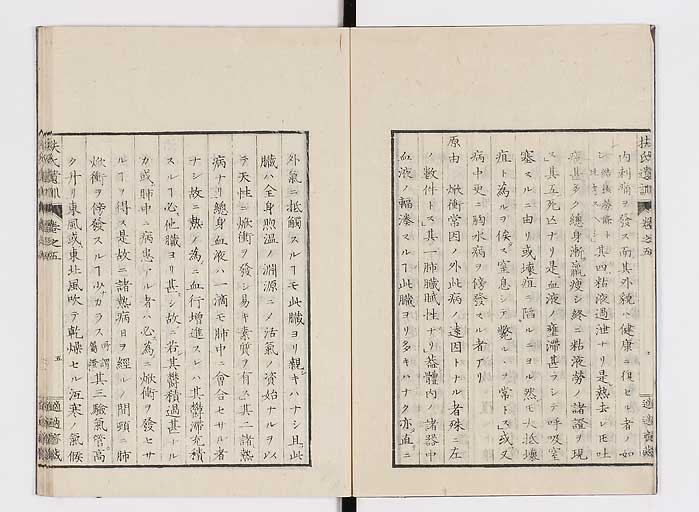 扶氏遺訓 卷之五
内刺痛ヲ發ス而其外貌ハ健康ニ復セル者ノ如
シ 其四粘液過泄ナリ是熱去レ𪜈吐
痰甚多ク總身漸羸瘦シ終ニ粘液勞ノ諸證ヲ現
ス其五死亡ナリ是血液ノ壅滯甚フシテ呼吸窒
塞スルニ由リ或壞疽ニ陷ルニヨル然𪜈大抵壞
疽ト為ルヲ俟ス窒息シテ斃ルヽヲ常トス或又
病中更ニ胸水病ヲ併發スル者アリ
原由 焮衝常因ノ外此病ノ遠因トナル者殊ニ左
ノ數件トス其一肺臟賦性ナリ蓋體内ノ諸器中
血液ノ輻湊スルヿ此臟ヨリ多キハナク亦直ニ
適適齋藏
外氣ニ抵觸スルヿモ此臟ヨリ親キハナシ且此
臟ハ全身煦溫ノ淵源ニノ活氣ノ資始ナルヲ以
テ天性ニ焮衝ヲ發シ易キ素質ヲ有ス其二諸熱
病ナリ總身血液ハ一滴モ肺中ニ會合セサル者
ナシ故ニ熱ノ為ニ血行增進スレハ其鬱滯充積
スルヿ必他臟ヨリ甚シ故ニ若其鬱積過甚ナル
カ或肺中ニ病患アル者ハ必為ニ焮衝ヲ發セサ
ルヿヲ得ス是故ニ諸熱病日ヲ經ルノ間頸ニ肺
焮衝ヲ併發スルヿ少ナカラス 其三驗氣管高
ク升リ東風或東北風吹テ乾燥セル沍寒ノ氣候
扶氏遺訓 卷之五
五
適適齋藏